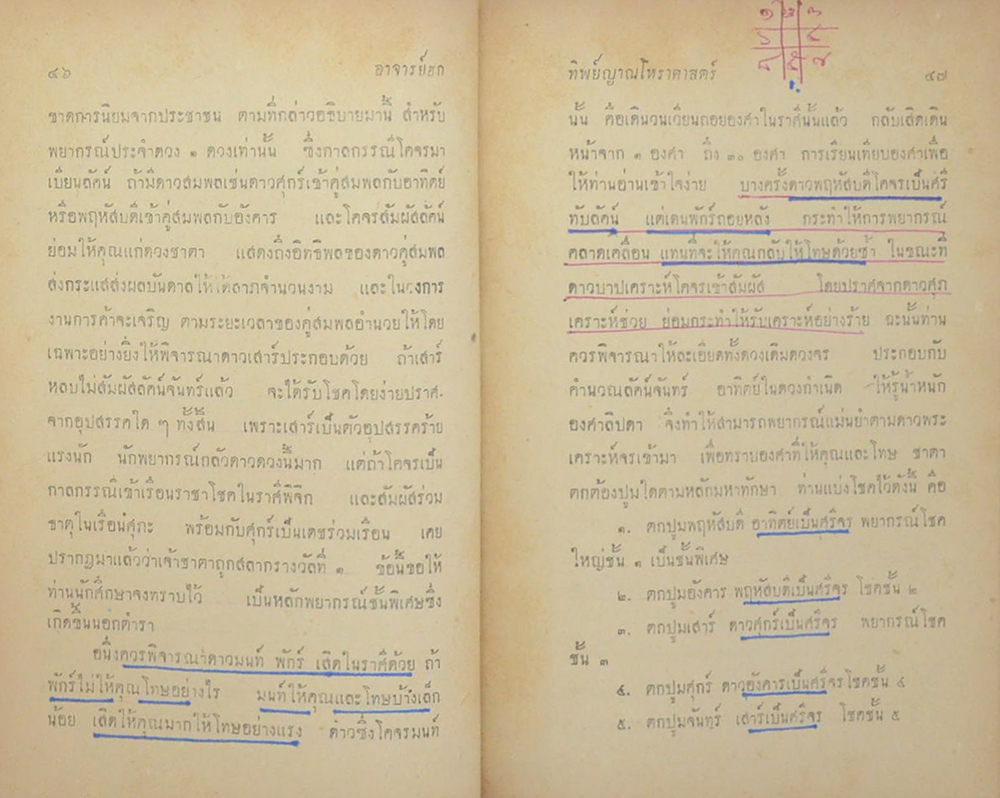 ๔๖ อาจารย์ฮก
ขาดการนิยมจากประชาชน ตามที่กล่าวอธิบายมานี้ สำหรับ
พยากรณ์ประจำดวง ๑ ดวงเท่านั้น ซึ่งกาลกรรณีโคจรมา
เบียนลัคน์ ถ้ามีดาวสมพลเช่นดาวศุกร์เข้าคู่สมพลกับอาทิตย์
หรือพฤหัสบดีเข้าคู่สมพลกับอังคาร และโคจรสัมผัสลัคน์
ย่อมให้คุณแก่ดวงชาตา แสดงถึงอิทธิพลของดาวคู่สมพล
ส่งกระแสส่งผลบันดาลให้ได้ลาภจำนวนงาม และในวงการ
งานการค้าจะเจริญ ตามระยะเวลาของคู่สมพลอำนวยให้โดย
เฉพาะอย่างยิ่งให้พิจารณาดาวเสาร์ประกอบด้วย ถ้าเสาร์
หลบไม่สัมผัสลัคน์จันทร์แล้ว จะได้รับโชคโดยง่ายปราศ-
จากอุปสรรคใด ๆ ทั้งสิ้น เพราะเสาร์เป็นตัวอุปสรรคร้าย
แรงนัก นักพยากรณ์กลัวดาวดวงนี้มาก แต่ถ้าโคจรเป็น
กาลกรรณีเข้าเรือนราชาโชคในราศีพิจิก และสัมผัสร่วม
ธาตุในเรือนศุภะ พร้อมกับศุกร์เป็นเดชร่วมเรือน เคย
ปรากฏมาแล้วว่าเจ้าชาตาถูกสลากรางวัลที่ ๑ ข้อนี้ขอให้
ท่านนักศึกษาจงทราบไว้ เป็นหลักพยากรณ์ชั้นพิเศษซึ่ง
เกิดขึ้นนอกตำรา
อนึ่งควรพิจารณาดาวมนท์ พักร์ เสิดในราศีด้วย ถ้า
พักร์ไม่ให้คุณโทษอย่างไร มนท์ให้คุณและโทษบ้างเล็ก
น้อย เสิดให้คุณมากให้โทษอย่างแรง ดาวซึ่งโคจรมนท์
ทิพย์ญาณโหราศาสตร์ ๔๗
๑ ๒ ๓
นั้น คือเดินวนเวียนถอยองศาในราศีนั้นแล้ว กลับเสิดเดิน
หน้าจาก ๑ องศา ถึง ๓๐ องศา การเรียนเทียบองศาเพื่อ
ให้ท่านอ่านเข้าใจง่าย บางครั้งดาวพฤหัสบดีโคจรเป็นศรี
ทับลัคน์ แต่เดนพักร์ถอยหลัง กระทำให้การพยากรณ์
คลาดเคลื่อน แทนที่จะให้คุณกลับให้โทษด้วยซ้ำ ในขณะที่
ดาวบาปเคราะห์โคจรเข้าสัมผัส โดยปราศจากดาวศุภ
เคราะห์ช่วย ย่อมกระทำให้รับเคราะห์อย่างร้าย ฉะนั้นท่าน
ควรพิจารณาให้ละเอียดทั้งดวงเดิมดวงจร ประกอบกับ
คำนวณลัคน์จันทร์ อาทิตย์ในดวงกำเนิด ให้รู้น้ำหนัก
องศาลิปดา จึงทำให้สามารถพยากรณ์แม่นยำตามดาวพระ
เคราะห์จรเข้ามา เพื่อทราบองศาที่ให้คุณและโทษ ชาตา
ตกต้องปูมใดตามหลักมหาทักษา ท่านแบ่งโชคไว้ดังนี้ คือ
๑. ตกปูมพฤหัสบดี อาทิตย์เป็นศรีจร พยากรณ์โชค
ใหญ่ชั้น ๑ เป็นชั้นพิเศษ
๒. ตกปูมอังคาร พฤหัสบดีเป็นศรีจร โชคชั้น ๒
๓. ตกปูมเสาร์ ดาวศุกร์เป็นศรีจร พยากรณ์โชค
ชั้น ๓
๔. ตกปูมศุกร์ ดาวอังคารเป็นศรีจรโชคชั้น ๔
๕. ตกปูมจันทร์ เสาร์เป็นศรีจร โชคชั้น ๕